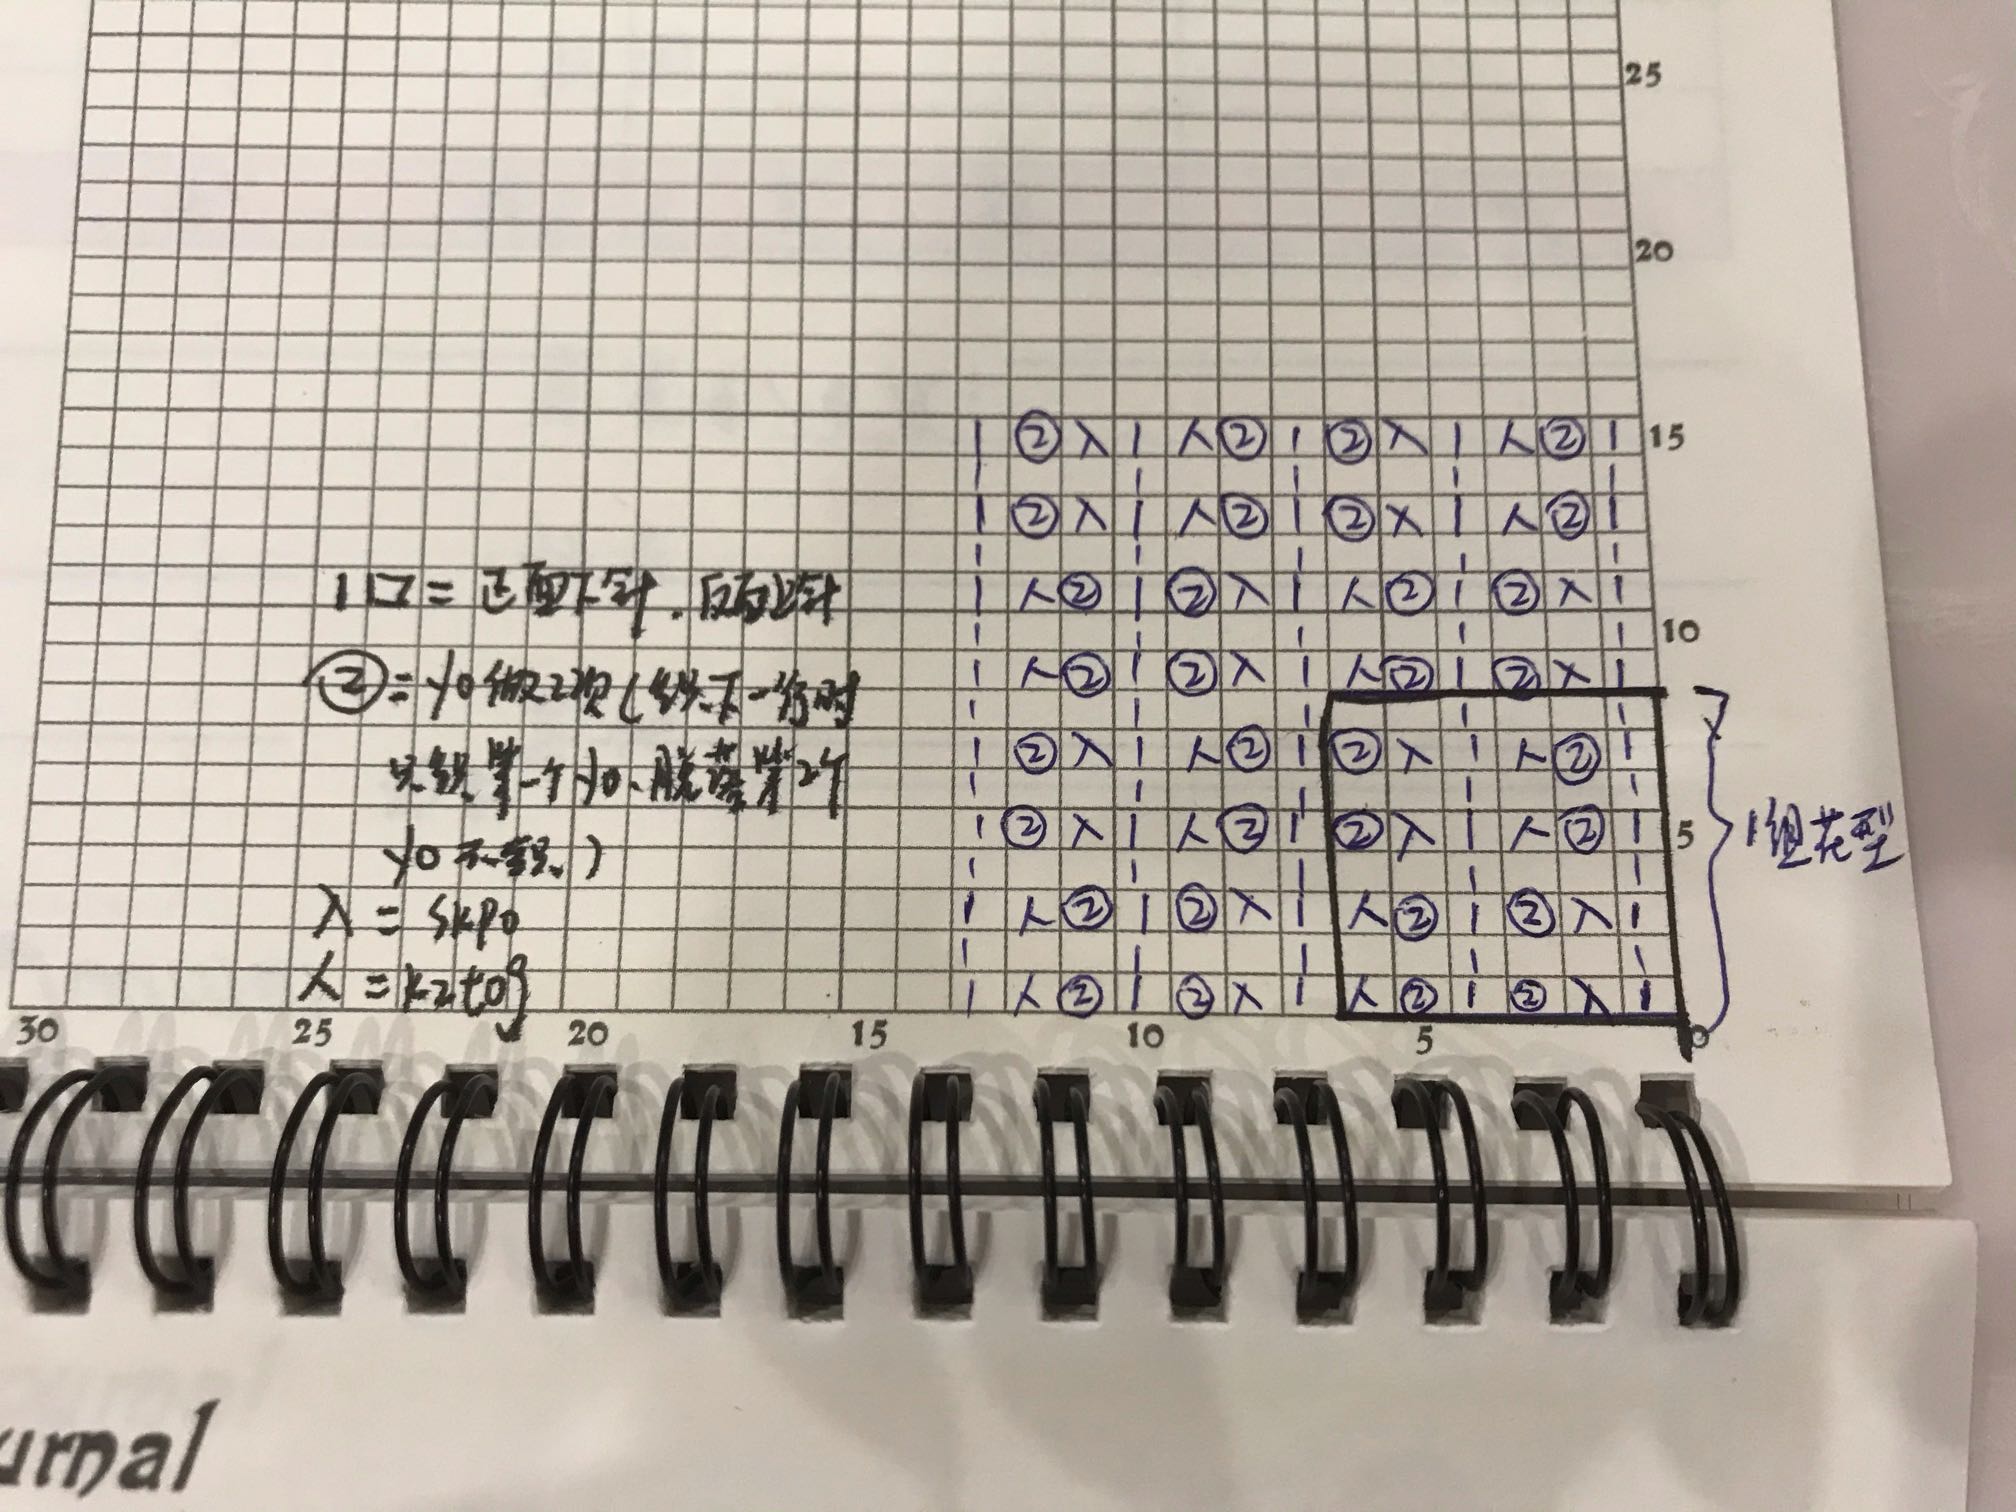 25
20
| ② λ | 人 ② | ② λ | 人 ② | 15
| ② λ | 人 ② | ② λ | 人 ② |
| 人 ② | ② λ | 人 ② | ② λ |
10
| 人 ② | ② λ | 人 ② | ② λ |
| ② λ | 人 ② | ② λ | 人 ② |
| ② λ | 人 ② | ② λ | 人 ② | 5
| 人 ② | ② λ | 人 ② | ② λ |
| 人 ② | ② λ | 人 ② | ② λ |
30 25 20 15 10 5 0
1组花型
| 口 = 正面下针.反面上针
② = yo 做2次(织下一行时
只织第一个yo、脱落第2个
yo不织.)
λ = skpo
人 = k2tog
urnal